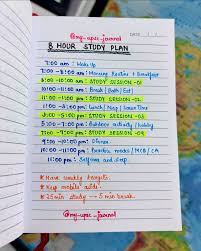 @my_upsc_journal
DATE
8 HOUR STUDY PLAN
7:00 am : Wake up
7:00 - 8:00 am : Morning Routine + Breakfast
8:00 - 10:00 am : STUDY SESSION - 01
10:00 - 11:00 am : Break / Bath / Eat /
11:00 - 1:00 pm : STUDY SESSION - 02
1:00 - 3:00 pm : Lunch / Nap / Leisure Time
3:00 - 5:00 pm : STUDY SESSION - 03
5:00 - 7:00 pm : Outdoor activity / hobby
7:00 - 9:00 pm : STUDY SESSION - 04
9:00 - 10:00 pm : Dinner
10:00 - 11:00 pm : Practice / MCQ / CA
11:00 pm : Selfcare and sleep.
* Have weekly targets.
* Keep mobile
* 25 min study → 5 min break
@my_upsc_journal